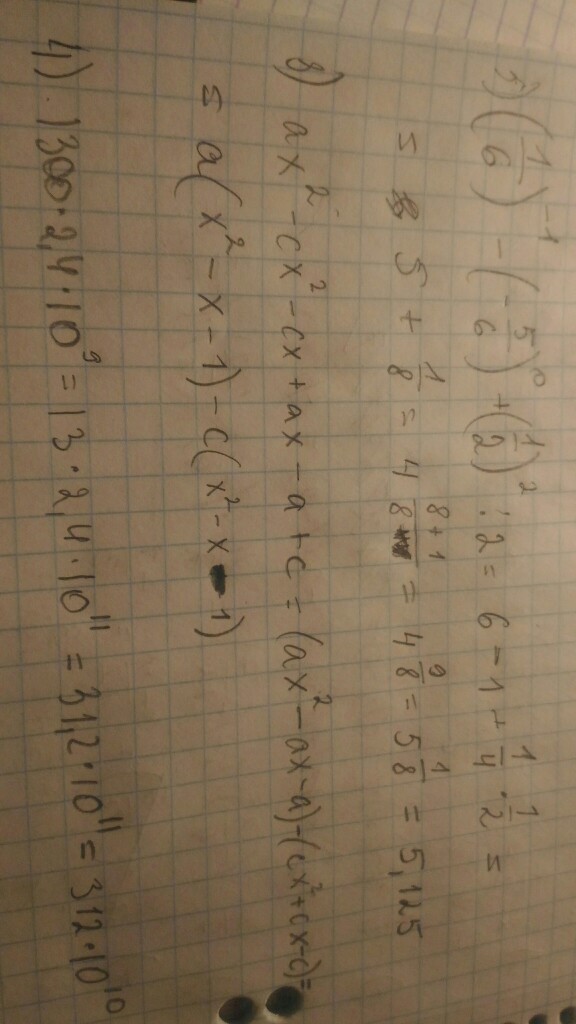 5) (1/6)^-1 - (-5/6)^0 + (1/2)^2 : 2 = 6 - 1 + 1/4 · 1/2 =
= 5 + 1/8 = 4 8+1/8 = 4 9/8 = 5 1/8 = 5,125
8) ax^2 - cx^2 - cx + ax - a + c = (ax^2 - ax - a) - (cx^2 + cx - c) =
= a(x^2 - x - 1) - c(x^2 - x - 1)
4) 1300 · 2,4 · 10^9 = 13 · 2,4 · 10^11 = 31,2 · 10^11 = 312 · 10^10